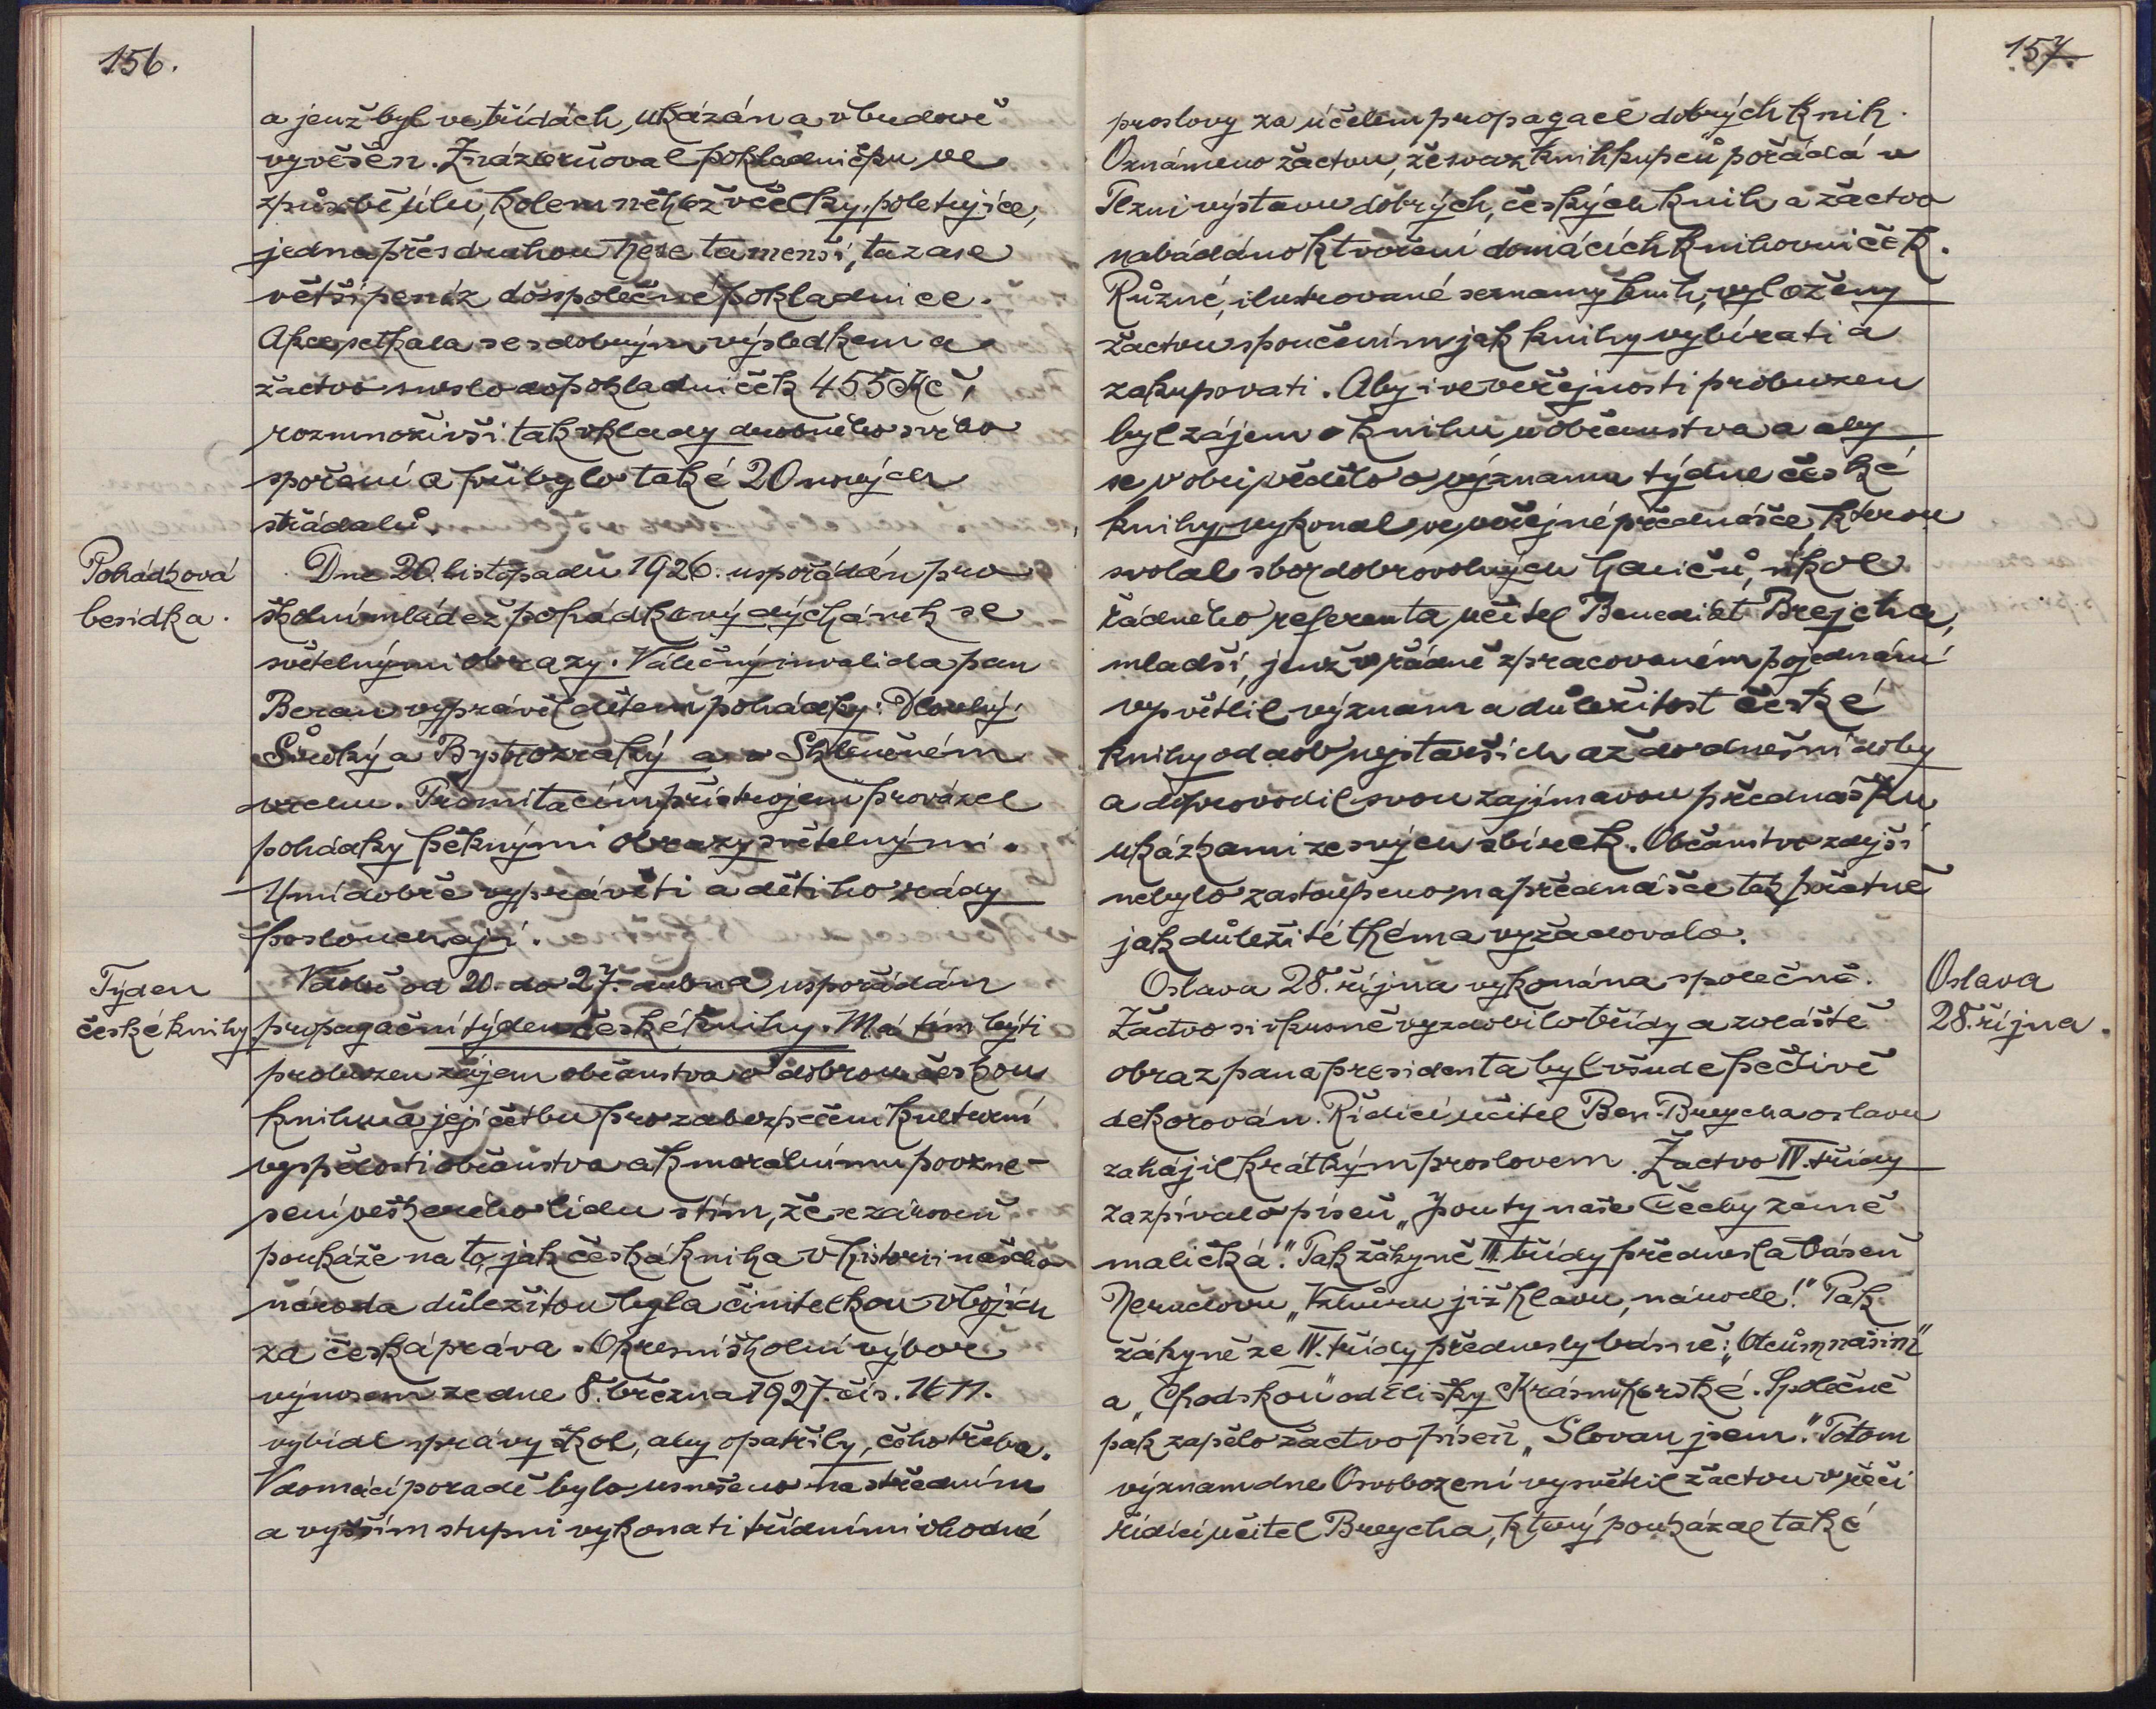 156.
a jenž byl ve třídách, ukázán a v budově
vyvěšen. Znázorňoval pokladničku ve
způsobě úlu, kolem něhož včelky poletujíce,
jedna přes druhou nese ta menší, ta zase
větší peníz do společné pokladnice.
Akce setkala se s dobrým výsledkem a
žactvo sneslo do pokladniček 455 Kč,
rozmnoživši tak vklady drobného svého
spoření a přibylo také 20 nových
střádalů.
Pohádková
besídka.
Dne 20. listopadu 1926. uspořádán pro
školní mládež pohádkový dýchánek se
světelnými obrazy. Válečný invalida pan
Beran vyprávěl dětem pohádky: Dlouhý,
Široký a Bystrozraký a o Skleněném
vrchu. Promítacím přístrojem provázel
pohádky pěknými obrazy světelnými.
Umí dobře vyprávěti a děti ho rády
poslouchají.
Týden
české knihy
V době od 20. do 27. dubna uspořádán
propagační týden české knihy. Má tím býti
probuzen zájem občanstva o dobrou českou
knihu a její četbu pro zabezpečení kulturní
vyspělosti občanstva a k morálnímu povzne-
sení veškerého lidu s tím, že se zároveň
poukáže na to, jak česká kniha v historii našeho
národa důležitou byla činitelkou v bojích
za česká práva. Okresní školní výbor
výnosem ze dne 8. března 1927. čís. 1611.
vybídl správy škol, aby opatřily, čeho třeba.
V domácí poradě bylo usneseno na středním
a vyšším stupni vykonati třídními vhodné
157.
proslovy za účelem propagace dobrých knih.
Oznámeno žactvu, že svaz knihkupců pořádá v
Plzni výstavu dobrých, českých knih a žactvo
nabádáno k tvoření domácích knihovniček.
Různé, ilustrované seznamy knih, vyloženy
žactvu s poučením jak knihy vybírati a
zakupovati. Aby i ve veřejnosti probuzen
byl zájem o knihu u občanstva a aby
se v obci vědělo o významu týdne české
knihy, vykonal ve veřejné přednášce, kterou
svolal sbor dobrovolných hasičů, úkol
řádného referenta učitel Benedikt Brejcha,
mladší, jenž v řádně zpracovaném pojednání
vysvětlil význam a důležitost české
knihy od dob nejstarších až do dnešní doby
a doprovodil svou zajímavou přednášku
ukázkami ze svých sbírek. Občanstvo zdejší
nebylo zastoupeno na přednášce tak početně
jak důležité théma vyžadovalo.
Oslava
28. října.
Oslava 28. října vykonána společně.
Žactvo si vkusně vyzdobilo třídy a zvláště
obraz pana presidenta byl všude pečlivě
dekorován. Řídící učitel Ben. Breycha oslavu
zahájil krátkým proslovem. Žactvo IV. třídy
zazpívalo píseň „Jsou ty naše Čechy země
maličká“. Pak žákyně III. třídy přednesla báseň
Nerudovu „Vzhůru již hlavu, národe!“ Pak
žákyně ze IV. třídy přednesly básně: „Otcům našim“
a „Chodskou“ od Elišky Krásnohorské. Společně
pak zapělo žactvo píseň „Slovan jsem.“ Potom
význam dne Osvobození vysvětlil žactvu v řeči
řídící učitel Breycha, který poukázal také